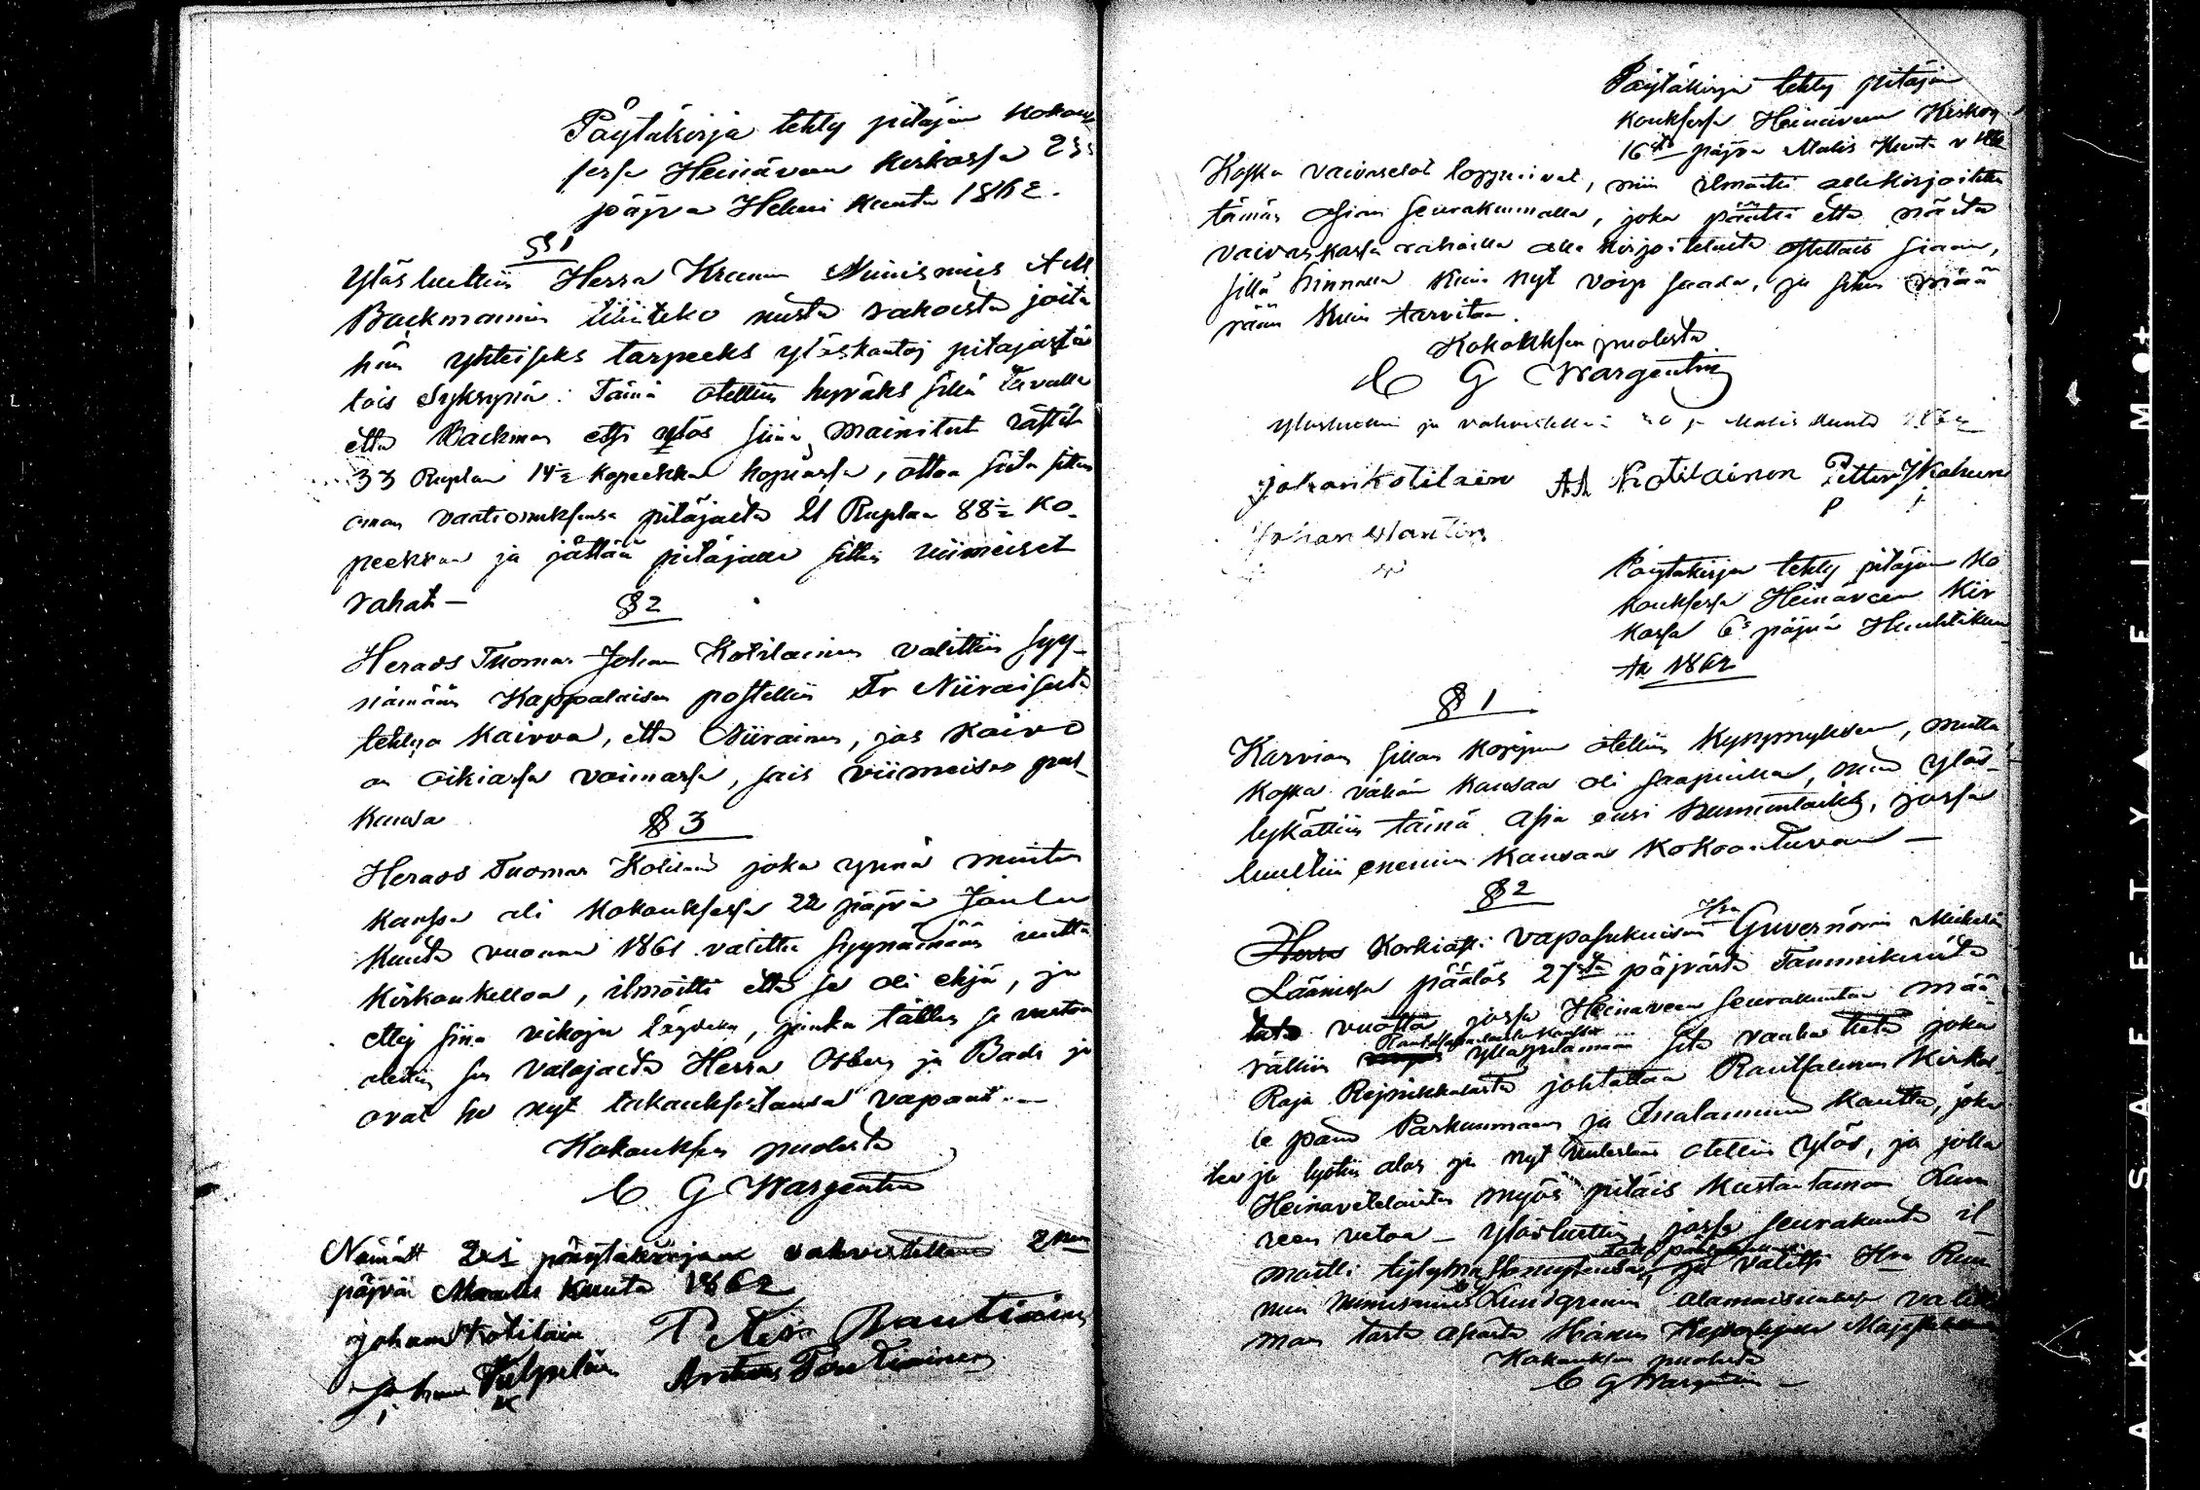 Pöytäkirja tehty pitäjän kokouk
sessa Heinäveen kirkossa 23s
päjvä Helmi kuuta 1862.
§ 1
Ylösluettiin Herra Kruunun Nimismies
Backmannin tiliiteko niistä rahoista joita
hän yhteiseks tarpeeks ylöskantoj pitajästä
tois syksynä. Tämä otettiin hyväks sillä tavalla
että Backman ottj ylös siinä mainitut rästit
33 Ruplan 14½ kopeekkan hopiassa, ottaa siitä sitten
oman vaatiomuksensa pitäjästä 21 Ruplaa 88½ ko-
peekkaa ja jättää pitäjälle sitten viimeiset
rahat —
§ 2
Heraos Tuomar Johan Kotilainen valittiin syy-
näämään Kappalaisen postelliin Niiraiselta
tehtyä kaivoa, että Niirainen, jos kaivo
on oikiassa voimassa, sais viimeisen pal-
kausa
§ 3
Heraos Tuomar Kotilainen joka ynnä muitten
kanssa oli kokouksessa 22 päjvä Joulu
kuuta vuonna 1861 valittu syynäämään uutta
kirkonkelloa, ilmoitti että se oli ehjä, ja
ettej siinä vikoja löydetty, jonka tähden se vastaan
otettiin sen valajasta Herra Osberg ja Bade ja
ovat he nyt takauksestansa vapaat. —
Kokouksen puolesta
C G Wargentin
Nämätt 2si pöäytäkirjaa vahvistettiin 2nen
päjvä Maalis kuuta 1862
johan Kotilain P Kein Bautiainen
Johan Antius Pautiainen
Pöytäkirja tehty pitäjän
kouksessa Heinäveen Kirkos
16ta päjvä Malis Kuuta v 1862
Koska vaivaselot loppuivat, niin ilmoitti allekirjoittatu
tämän asian seurakunnalla, joka päätti että näitä
vaivaskassa rahoilla alla kirjoitetulta ostettais siaan,
sillä hinnalla kuin nyt voip saada, ja sitten määä
rään kuin tarvitaan.
Kokouksen puolesta
C G Wargentin
Ylösluettiin ja vahvistettiin Malis Kuuta 1862
johan kotilain AA Kotilainen Petter Ikäheim
P j
Johan
Pöytäkirja tehty pitäjän ko
kouksessa Heinäveen Kir
kossa 6s päjvä Huuhtikuu
ta 1862
§ 1
Karvion sillan korjuu otettiin kysymykseen, mutta
koska vähän kansaa oli saapuilla, niin ylös
lykättiin tämä asia ensi sunnuntaiks, jossa
luultiin enemin kansaa kokoontuvan —
§ 2
Hra
Herra Korkiasti vapasukuisen Guvernörin Mickelin
Läänissä päätös 27stä päjvästä Tammikuuta
tätä vuotta jossa Heinaveen seurakuntaa mää
rättiin ylläpitämään sitä vanhaa tietä joka
Raja Rejnikkalasta johtattaa Rantsalmen Kirkol
le pain Parkunmaan ja Inalanmaan kautta, joka
tie ja lyötiin alas ja nyt uudestaan otettiin ylös, ja jolla
Heinavetelaisten myös pitäis kustantaman
veen vetoa — ylösluettiin, jossa seurakunta il
moitti tytymättömytensä, ja valitsi Hra Ruu
nun nimismies Lundgrenin alamaisuudessa valitta
maan tästä asiasta Hänen Kejsarilliselle Majestetille
Kokouksen puolesta
C G Wargentin —
AKSAEETYA FILM